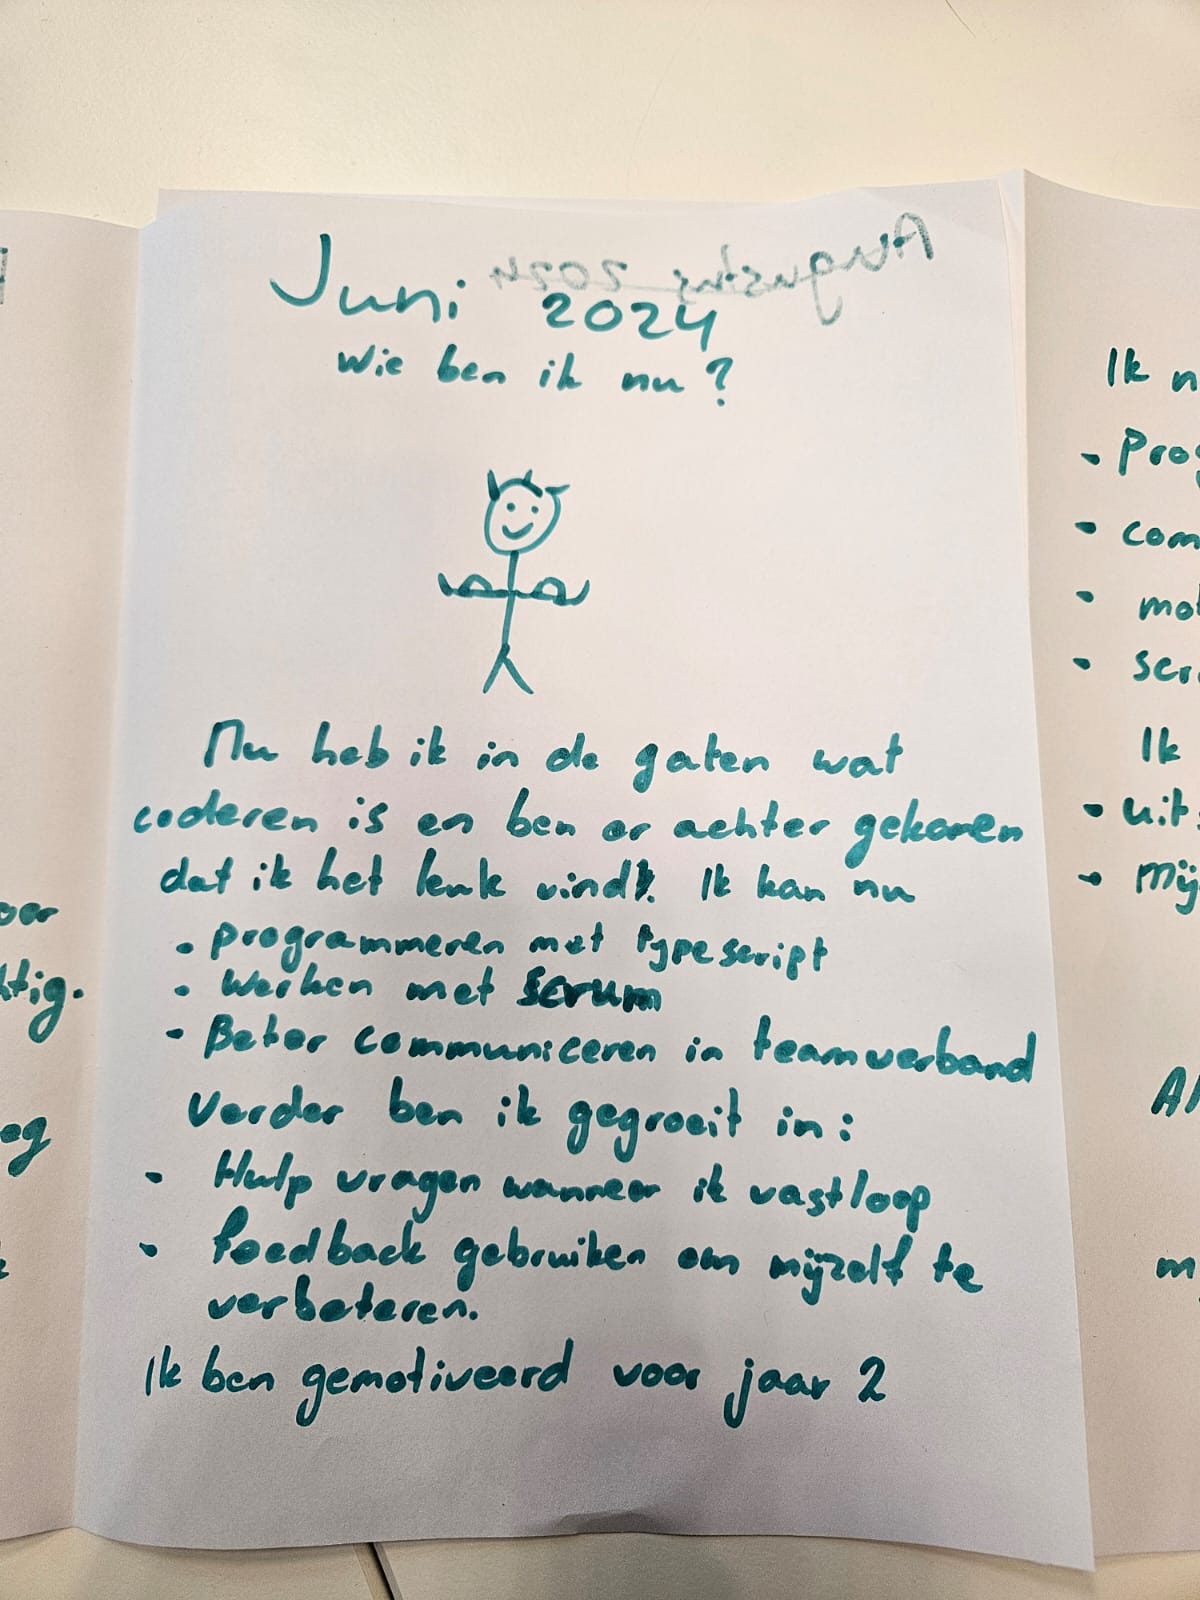 Juni 2024
Augustus 2024
Wie ben ik nu?
Nu heb ik in de gaten wat
coderen is en ben er achter gekomen
dat ik het leuk vind. Ik kan nu
- programmeren met typescript
- Werken met scrum
- Beter communiceren in teamverband
Verder ben ik gegroeit in:
- Hulp vragen wanneer ik vastloop
- Feedback gebruiken om mijzelf te
verbeteren.
Ik ben gemotiveerd voor jaar 2
htig.
Ik
-
- com
-
-
Ik
- uit
- Mij